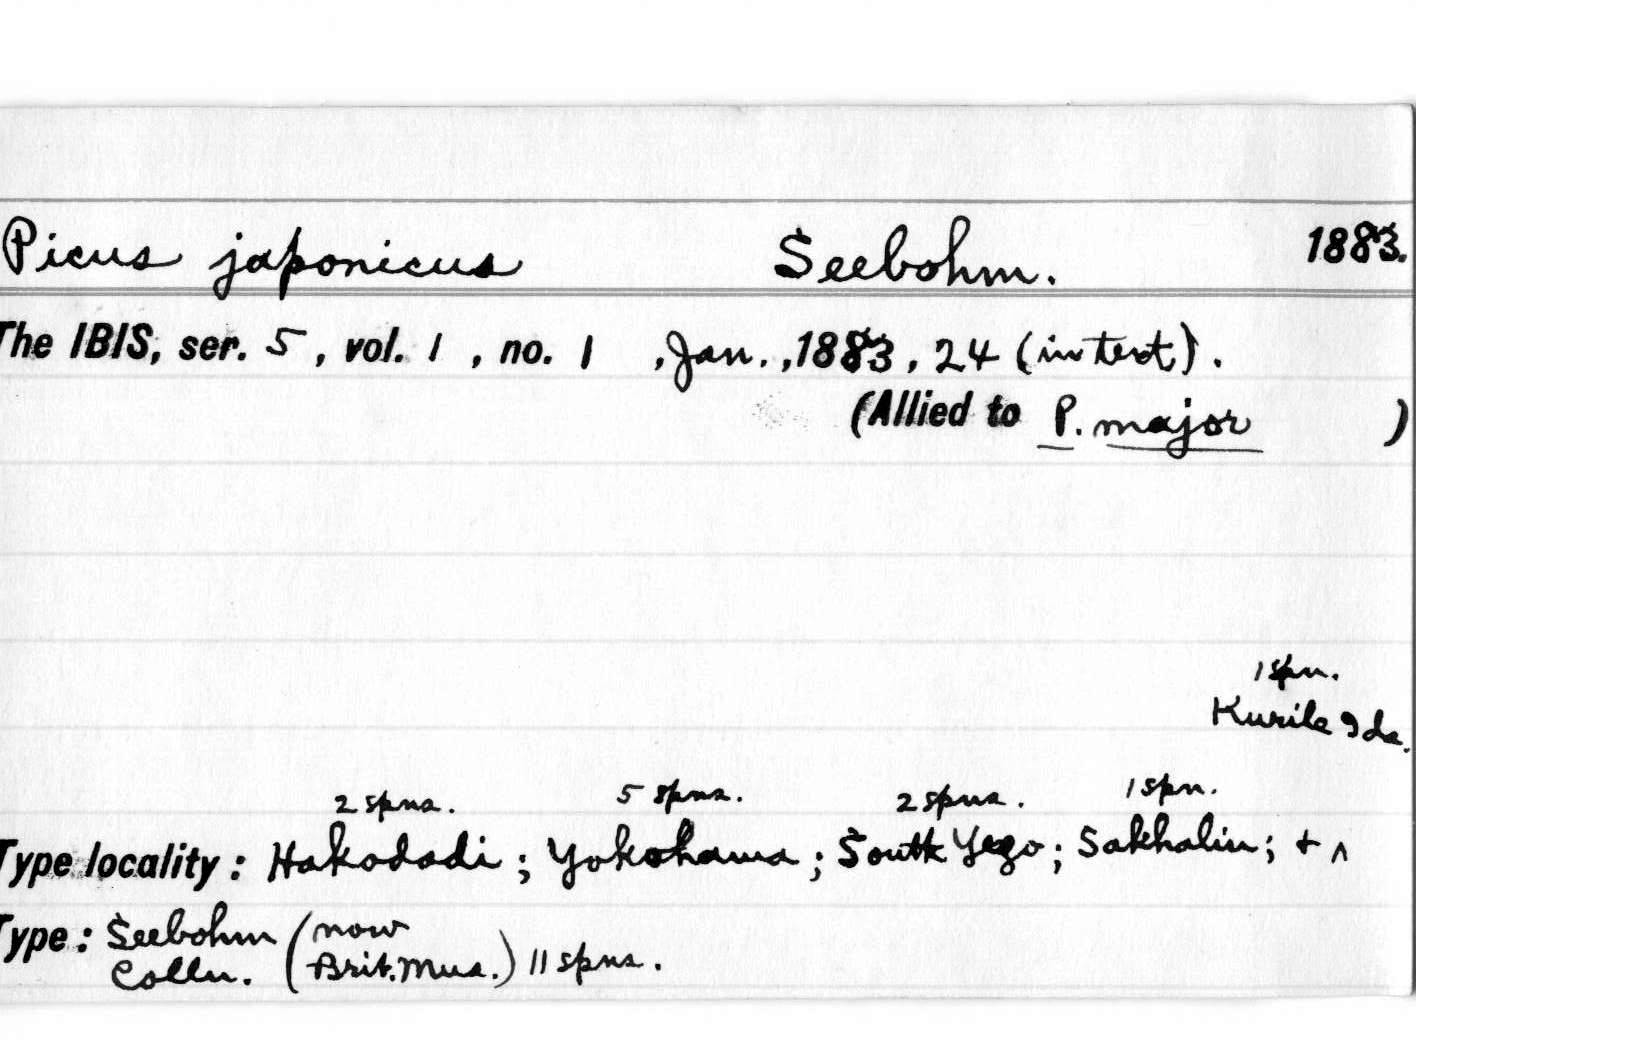 Picus japonicus Seebohm. 1883.
The IBIS, ser. 5, vol. 1, no. 1, Jan., 1883, 24 (in text).
(Allied to P. major)
1 spn.
Kurile Ids.
2 spns. 5 spns. 2 spns. 1 spn.
Type locality: Hakodadi; Yokohama; South Yezo; Sakhalin; + ^
Type: Seebohm (now
Colln. Brit. Mus.) 11 spns.